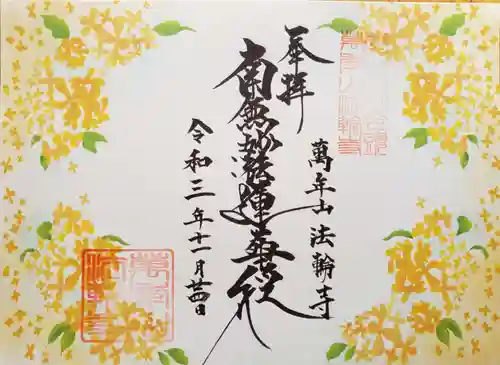 奉拝
萬年山法輪寺
南無妙法蓮華経
令和三年十一月廿四日